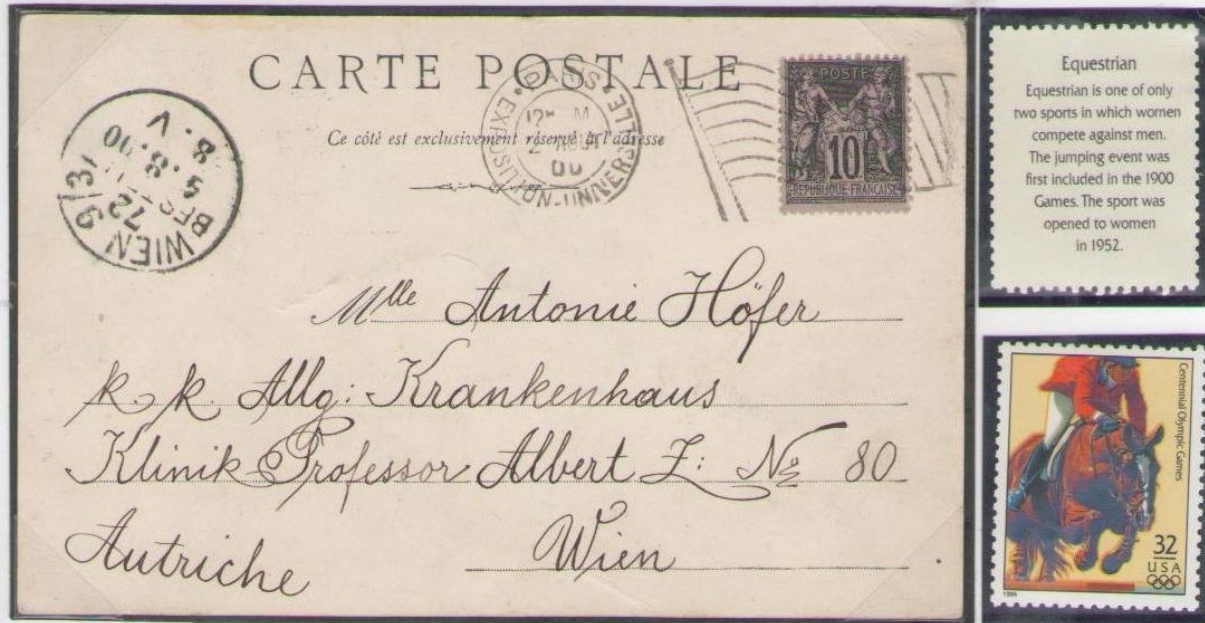 CARTE POSTALE
Ce côté est exclusivement réservé à l'adresse
PARIS
EXPOSITION-UNIVERSELLE
AOUT
00
POSTE
10
REPUBLIQUE FRANÇAISE
WIEN 9/3
72
BEST
8. V
Mlle Antonie Höfer
k. k. Allg: Krankenhaus
Klinik Professor Albert Z: No 80
Autriche Wien
Equestrian
Equestrian is one of only
two sports in which women
compete against men.
The jumping event was
first included in the 1900
Games. The sport was
opened to women
in 1952.
Centennial Olympic Games
32
USA
1996